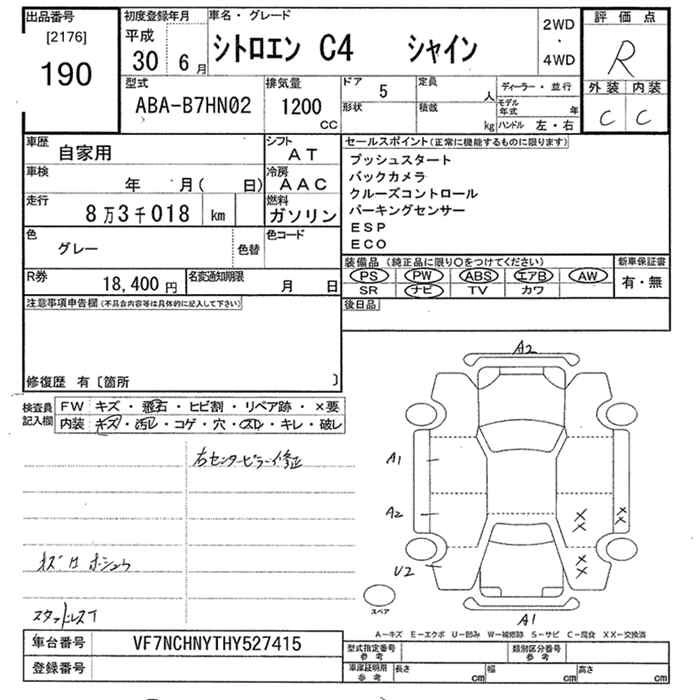 出品番号
[2176]
190
初度登録年月
平成
30 6 月
車名・グレード
シトロエン C4 シャイン
2WD
・
4WD
評価点
R
外装 内装
C C
型式
ABA-B7HN02
排気量
1200
CC
ドア 5
形状
定員 人
積載 kg
ディーラー・並行
モデル年式 年
ハンドル 左・右
車歴
自家用
シフト
AT
車検
年 月( 日)
冷房
AAC
走行
8万3千018 km
燃料
ガソリン
色
グレー
色替
色コード
R券
18,400 円
名変通知期限
月 日
注意事項申告欄(不具合内容等は具体的に記入して下さい)
修復歴 有〔箇所 〕
セールスポイント(正常に機能するものに限ります)
プッシュスタート
バックカメラ
クルーズコントロール
パーキングセンサー
ESP
ECO
装備品 (純正品に限り○をつけてください)
PS PW ABS エアB AW
SR ナビ TV カワ
新車保証書
有・無
後日品
検査員
記入欄
FW キズ・飛石・ヒビ割・リペア跡・×要
内装 キズ・汚レ・コゲ・穴・スレ・キレ・破レ
右センターピラー修正
スタッドレス
A2
A1
A2
U2
A1
XX
XX
XX
スペア
A－キズ E－エクボ U－凹み W－補修跡 S－サビ C－腐食 XX－交換済
車台番号 VF7NCHNYTHY527415
登録番号
型式指定番号
参考
類別区分番号
参考
車庫証明用
参考
長さ cm 幅 cm 高さ cm